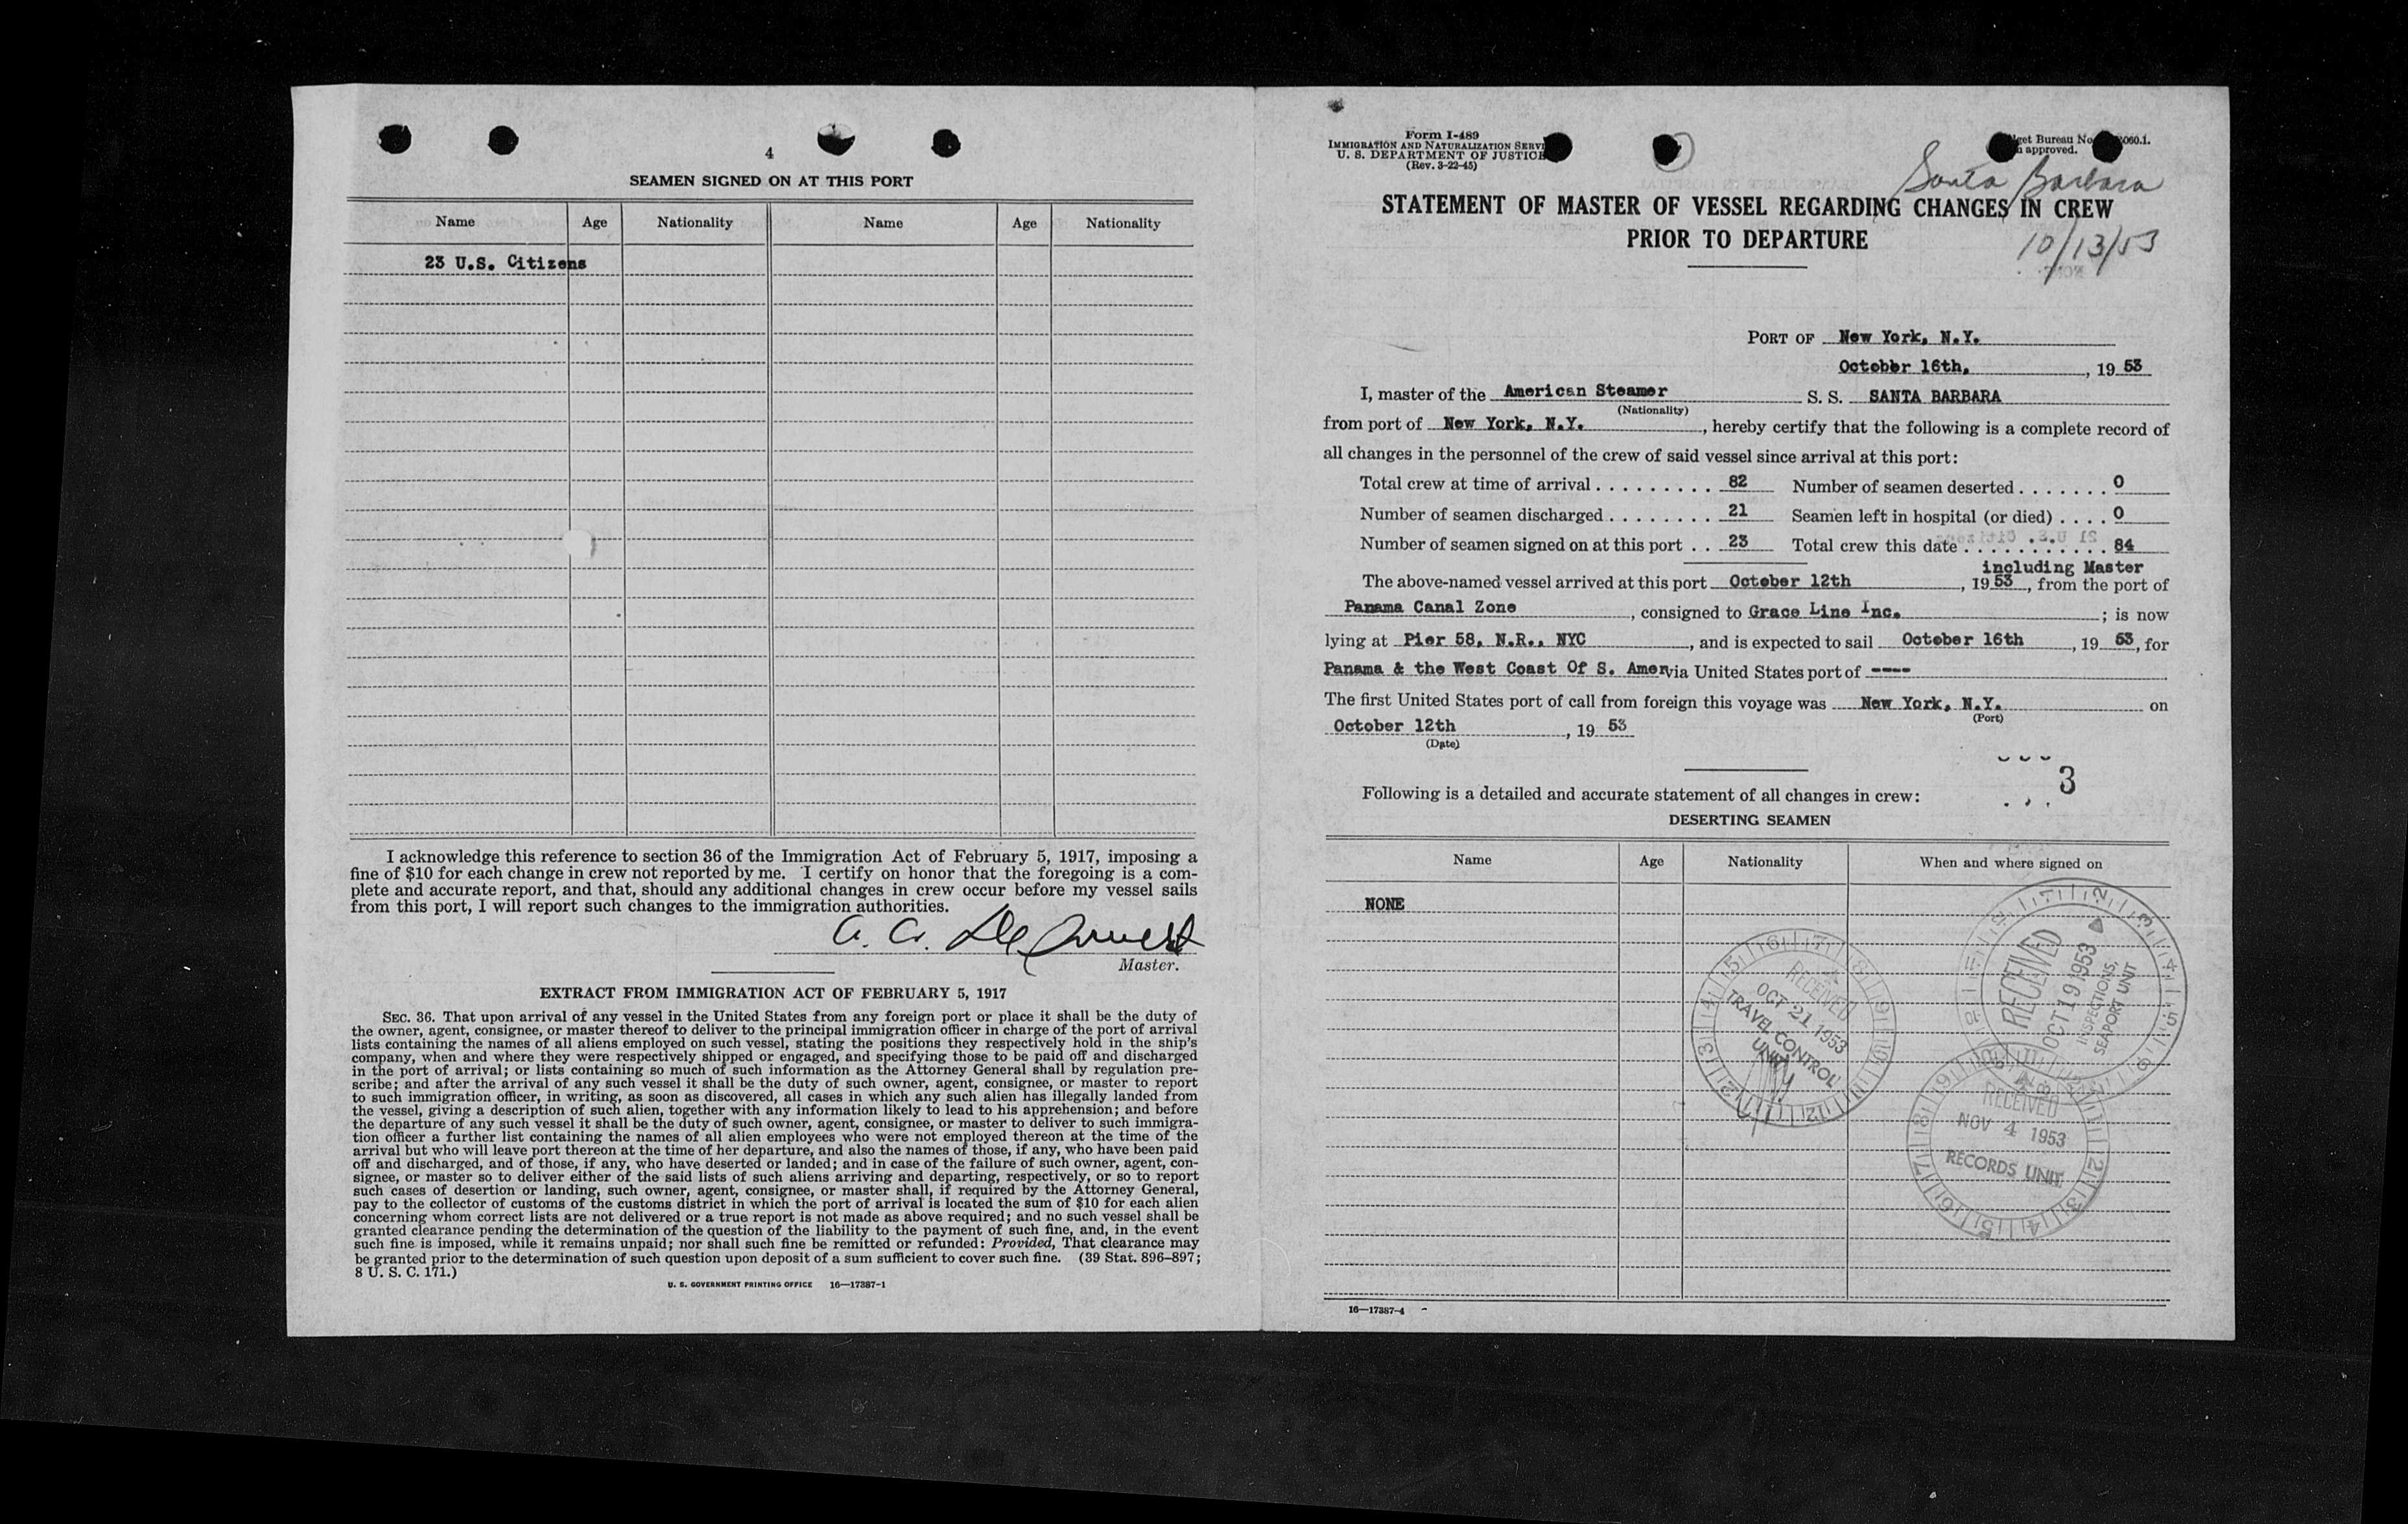 4
SEAMEN SIGNED ON AT THIS PORT
Name Age Nationality Name Age Nationality
23 U.S. Citizens
I acknowledge this reference to section 36 of the Immigration Act of February 5, 1917, imposing a
fine of $10 for each change in crew not reported by me. I certify on honor that the foregoing is a com-
plete and accurate report, and that, should any additional changes in crew occur before my vessel sails
from this port, I will report such changes to the immigration authorities.
Master.
EXTRACT FROM IMMIGRATION ACT OF FEBRUARY 5, 1917
SEC. 36. That upon arrival of any vessel in the United States from any foreign port or place it shall be the duty of
the owner, agent, consignee, or master thereof to deliver to the principal immigration officer in charge of the port of arrival
lists containing the names of all aliens employed on such vessel, stating the positions they respectively hold in the ship's
company, when and where they were respectively shipped or engaged, and specifying those to be paid off and discharged
in the port of arrival; or lists containing so much of such information as the Attorney General shall by regulation pre-
scribe; and after the arrival of any such vessel it shall be the duty of such owner, agent, consignee, or master to report
to such immigration officer, in writing, as soon as discovered, all cases in which any such alien has illegally landed from
the vessel, giving a description of such alien, together with any information likely to lead to his apprehension; and before
the departure of any such vessel it shall be the duty of such owner, agent, consignee, or master to deliver to such immigra-
tion officer a further list containing the names of all alien employees who were not employed thereon at the time of the
arrival but who will leave port thereon at the time of her departure, and also the names of those, if any, who have been paid
off and discharged, and of those, if any, who have deserted or landed; and in case of the failure of such owner, agent, con-
signee, or master so to deliver either of the said lists of such aliens arriving and departing, respectively, or so to report
such cases of desertion or landing, such owner, agent, consignee, or master shall, if required by the Attorney General,
pay to the collector of customs of the customs district in which the port of arrival is located the sum of $10 for each alien
concerning whom correct lists are not delivered or a true report is not made as above required; and no such vessel shall be
granted clearance pending the determination of the question of the liability to the payment of such fine, and, in the event
such fine is imposed, while it remains unpaid; nor shall such fine be remitted or refunded: Provided, That clearance may
be granted prior to the determination of such question upon deposit of a sum sufficient to cover such fine. (39 Stat. 896–897;
8 U. S. C. 171.)
U. S. GOVERNMENT PRINTING OFFICE 16—17387-1
Form I-489
IMMIGRATION AND NATURALIZATION SERVI
U. S. DEPARTMENT OF JUSTICE
(Rev. 3-22-45)
get Bureau No. 060.1.
approved.
Santa Barbara
STATEMENT OF MASTER OF VESSEL REGARDING CHANGES IN CREW
PRIOR TO DEPARTURE
10/13/53
PORT OF New York, N.Y.
October 16th, , 19 53
I, master of the American Steamer S. S. SANTA BARBARA
(Nationality)
from port of New York, N.Y. , hereby certify that the following is a complete record of
all changes in the personnel of the crew of said vessel since arrival at this port:
Total crew at time of arrival . . . . . . . . . 82 Number of seamen deserted . . . . . . . 0
Number of seamen discharged . . . . . . . . 21 Seamen left in hospital (or died) . . . . 0
Number of seamen signed on at this port . . 23 Total crew this date . . . . . . . . . . . 84
including Master
The above-named vessel arrived at this port October 12th , 19 53 , from the port of
Panama Canal Zone , consigned to Grace Line Inc. ; is now
lying at Pier 58, N.R., NYC , and is expected to sail October 16th , 19 53 , for
Panama & the West Coast Of S. Amer via United States port of ----
The first United States port of call from foreign this voyage was New York, N.Y. on
(Port)
October 12th , 19 53
(Date)
3
Following is a detailed and accurate statement of all changes in crew:
DESERTING SEAMEN
Name Age Nationality When and where signed on
NONE
RECEIVED
OCT 19 1953
INSPECTIONS,
SEAPORT UNIT
RECEIVED
OCT 21 1953
TRAVEL CONTROL
UNIT
RECEIVED
NOV 4 1953
RECORDS UNIT
16—17387-4